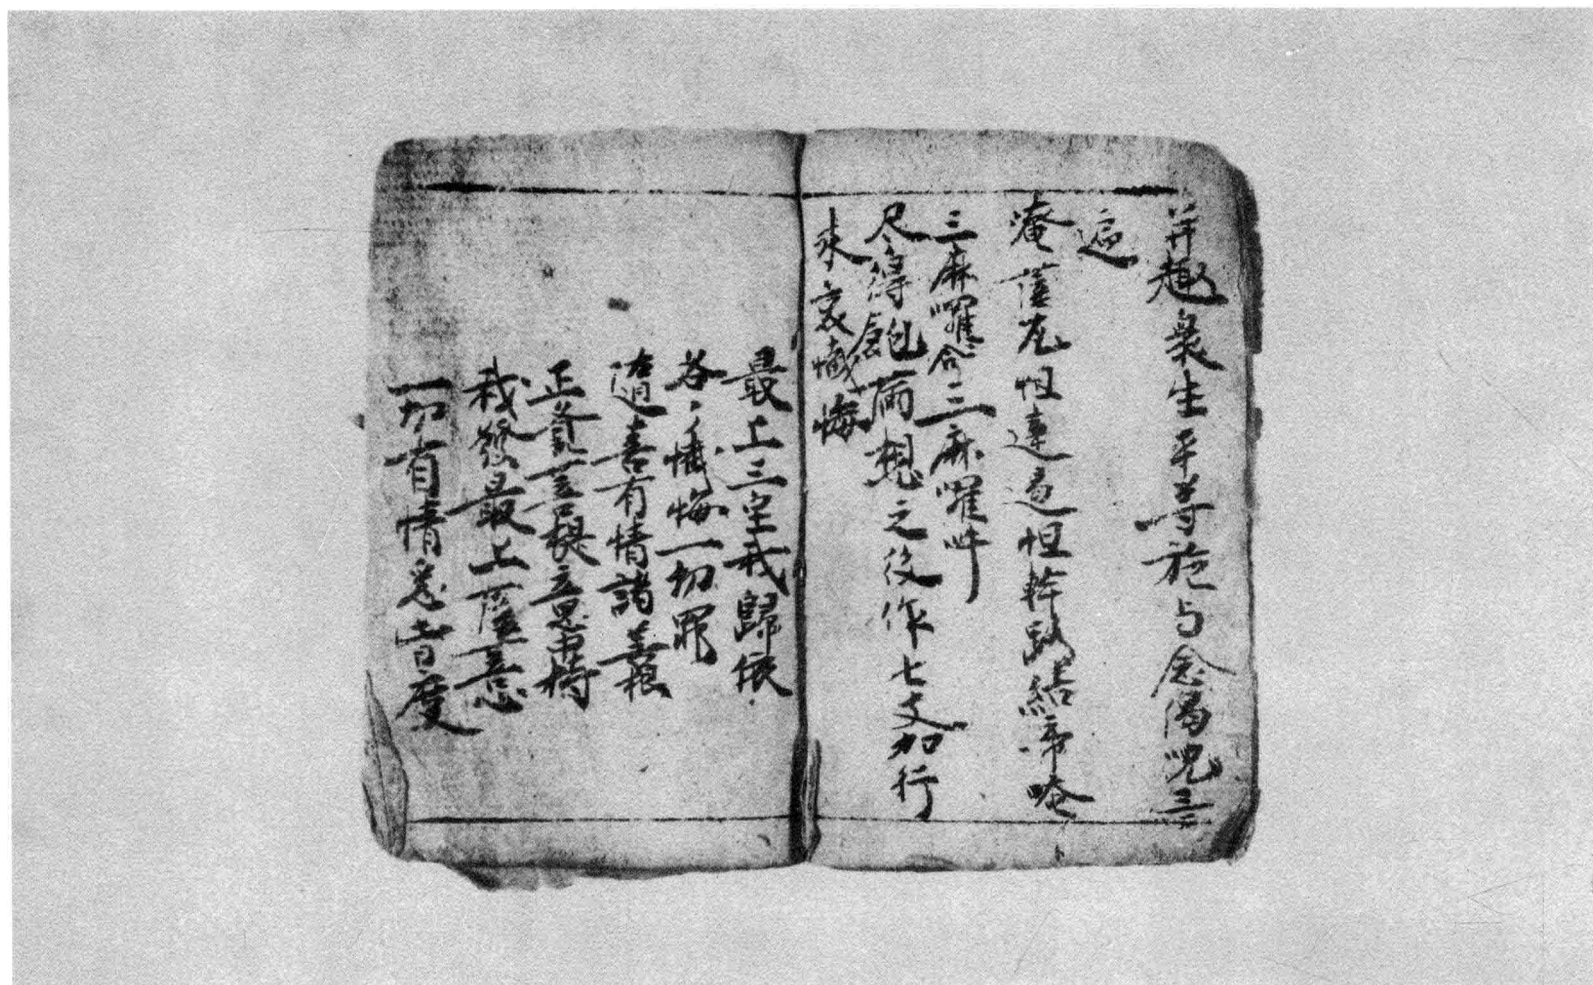 并趣衆生平等施与念偈呪三
遍
唵薩左怛達遏怛幹路結帝唵
三麻囉合三麻囉吽
尽得飽滿想之後作七支加行
来哀懺悔
最上三宝我歸依
各々懺悔一切罪
随喜有情諸善根
正㪍菩提意思持
我發最上菩意
一切有情急皆度